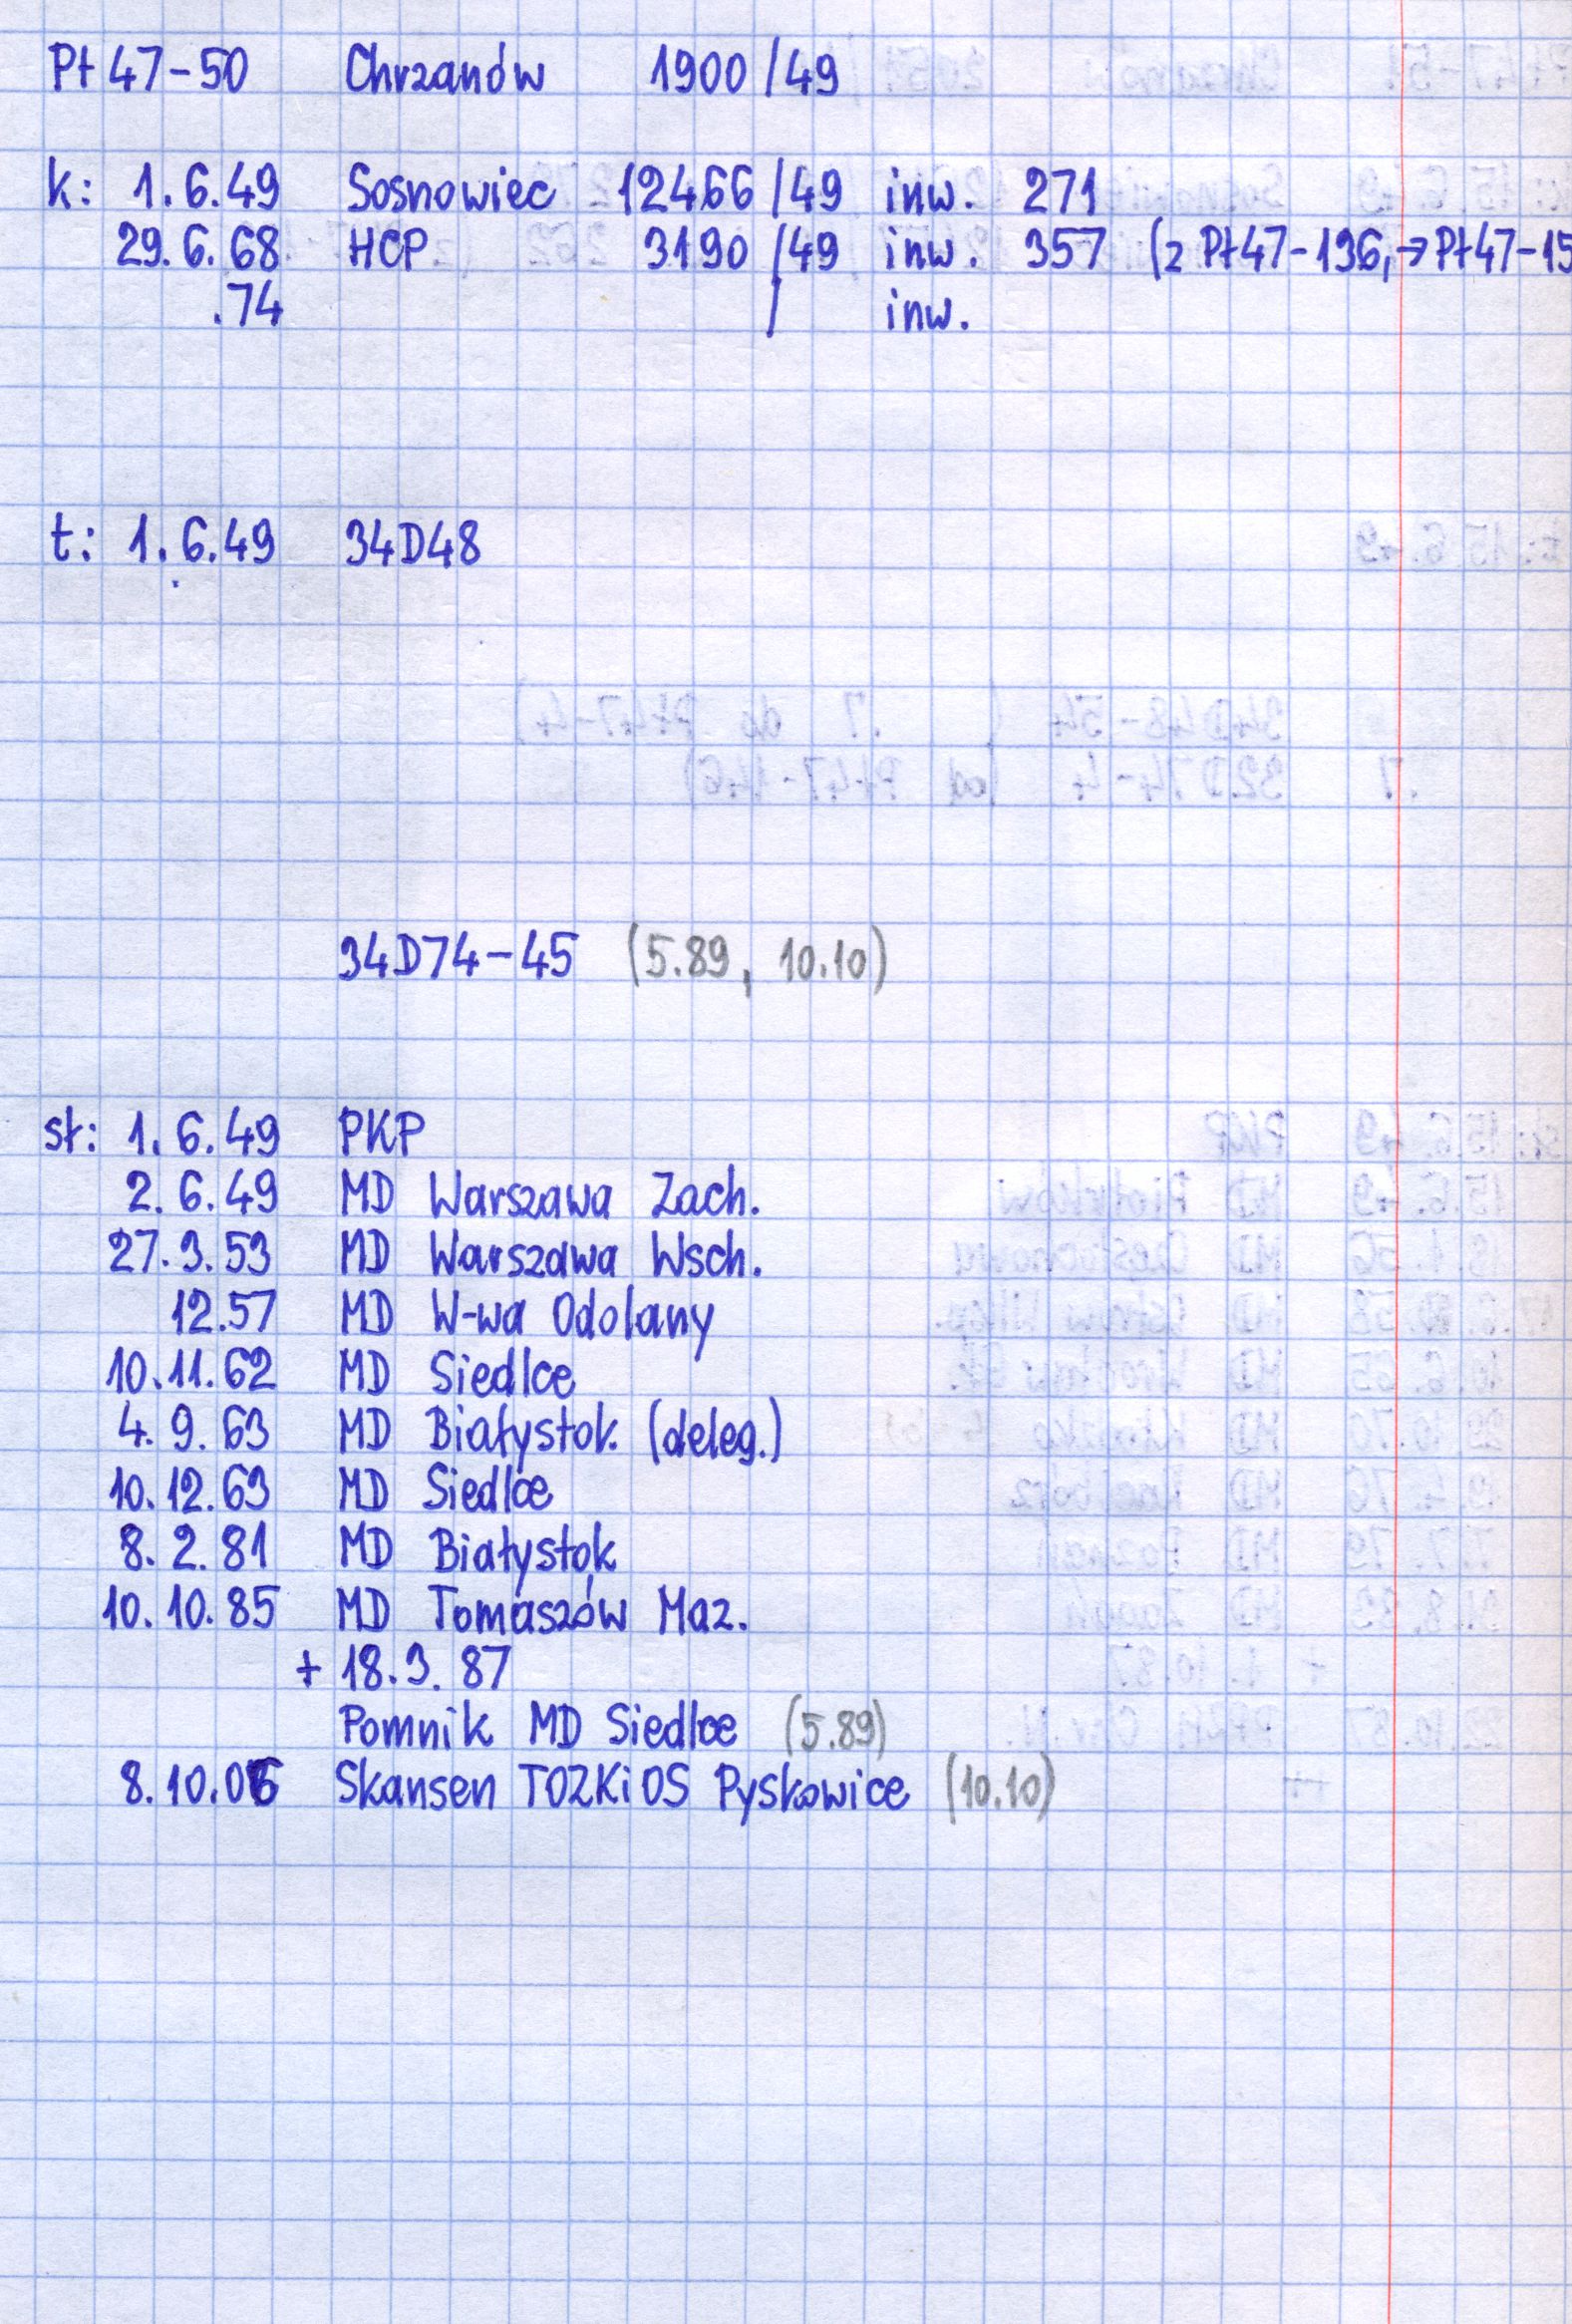 Pt47-50 Chrzanów 1900/49
k: 1.6.49 Sosnowiec 12466/49 inw. 271
29.6.68 HCP 3190/49 inw. 357 (z Pt47-136, → Pt47-15
.74 / inw.
t: 1.6.49 34D48
34D74-45 (5.89, 10.10)
st: 1.6.49 PKP
2.6.49 MD Warszawa Zach.
27.3.53 MD Warszawa Wsch.
12.57 MD W-wa Odolany
10.11.62 MD Siedlce
4.9.63 MD Białystok (deleg.)
10.12.63 MD Siedlce
8.2.81 MD Białystok
10.10.85 MD Tomaszów Maz.
+ 18.3.87
Pomnik MD Siedlce (5.89)
8.10.06 Skansen TOZKiOS Pyskowice (10.10)